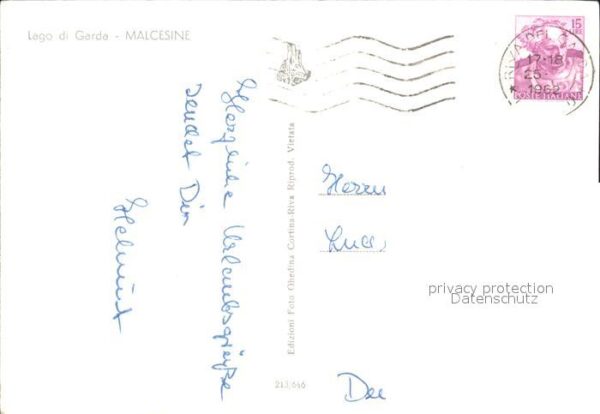 Lago di Garda - MALCESINE
Herzliche Urlaubsgrüße
sendet Dir
Helmut
Edizioni Foto Ghedina Cortina-Riva Riprod. Vietata
213/646
15
LIRE
POSTE ITALIANE
RIVA DEL
17-18
25
1962
Herrn
privacy protection
Datenschutz